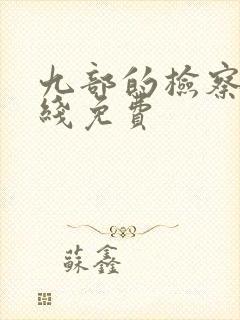 九部的檢察
綫免費
蘇鑫